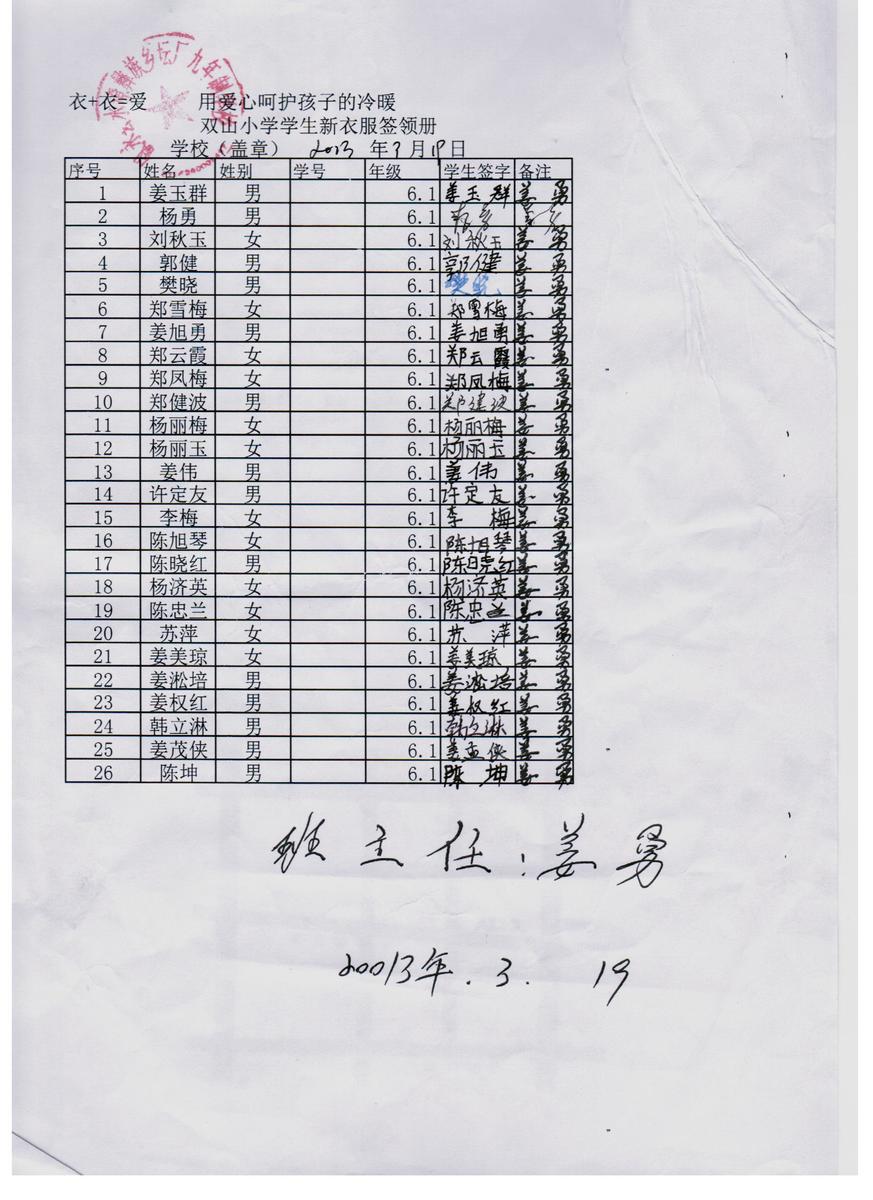 衣+衣=爱 用爱心呵护孩子的冷暖
双山小学学生新衣服签领册
学校(盖章) 2013 年3月19日
序号 姓名 性别 学号 年级 学生签字 备注
1 姜玉群 男 6.1 姜玉群 姜勇
2 杨勇 男 6.1 姜勇
3 刘秋玉 女 6.1 刘秋玉 姜勇
4 郭健 男 6.1 郭健 姜勇
5 樊晓 男 6.1 樊晓 姜勇
6 郑雪梅 女 6.1 郑雪梅 姜勇
7 姜旭勇 男 6.1 姜旭勇 姜勇
8 郑云霞 女 6.1 郑云霞 姜勇
9 郑凤梅 女 6.1 郑凤梅 姜勇
10 郑健波 男 6.1 郑建波 姜勇
11 杨丽梅 女 6.1 杨丽梅 姜勇
12 杨丽玉 女 6.1 杨丽玉 姜勇
13 姜伟 男 6.1 姜伟 姜勇
14 许定友 男 6.1 许定友 姜勇
15 李梅 女 6.1 李梅 姜勇
16 陈旭琴 女 6.1 陈旭琴 姜勇
17 陈晓红 男 6.1 陈晓红 姜勇
18 杨济英 女 6.1 杨济英 姜勇
19 陈忠兰 女 6.1 陈忠兰 姜勇
20 苏萍 女 6.1 苏萍 姜勇
21 姜美琼 女 6.1 姜美琼 姜勇
22 姜淞培 男 6.1 姜淞培 姜勇
23 姜权红 男 6.1 姜权红 姜勇
24 韩立淋 男 6.1 韩立淋 姜勇
25 姜茂侠 男 6.1 姜孟侠 姜勇
26 陈坤 男 6.1 陈坤 姜勇
班主任:姜勇
20013年.3. 19